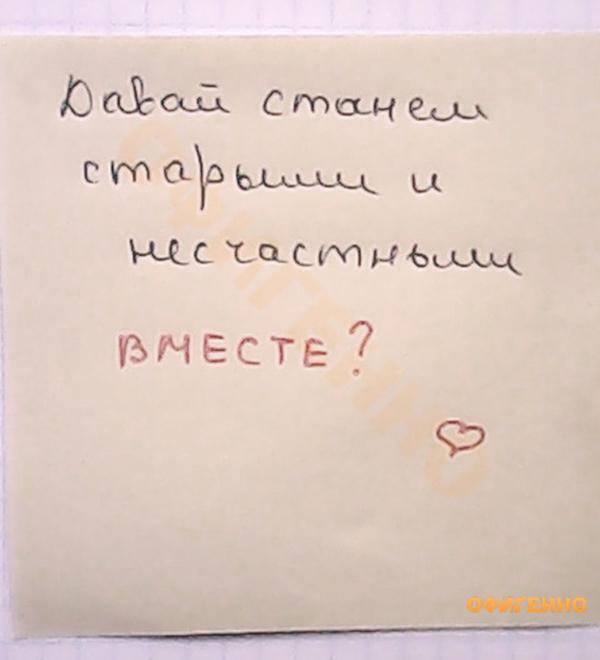 Давай станем
старыми и
несчастными
ВМЕСТЕ?
ОФИГЕННО
ОФИГЕННО